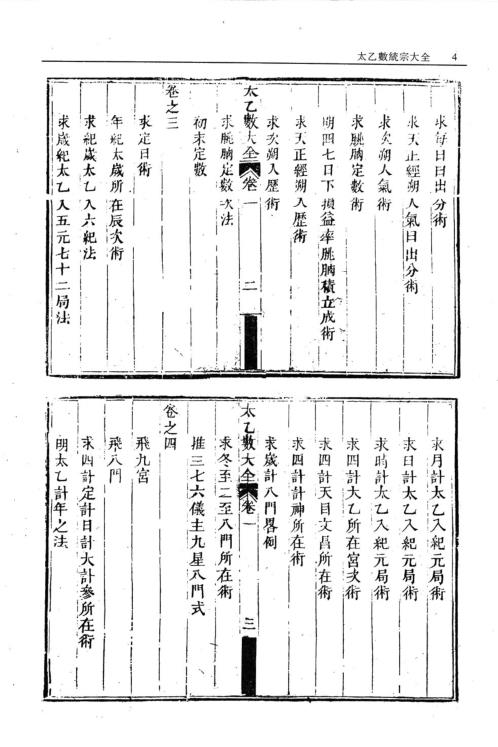 太乙數統宗大全 4
求每日日出分術
求天正經朔入氣日出分術
求次朔入氣術
求朓朒定數術
明四七日下損益率朓朒積立成術
求天正經朔入歷術
求次朔入歷術
太乙數大全卷一 二
求朓朒定數次法
初末定數
求定日術
卷之三
年紀太歲所在辰次術
求紀歲太乙入六紀法
求歲紀太乙入五元七十二局法
求月計太乙入紀元局術
求日計太乙入紀元局術
求時計太乙入紀元局術
求四計太乙所在宮次術
求四計天目文昌所在術
求四計計神所在術
求歲計八門畧例
太乙數大全卷一 三
求冬至二至八門所在術
推三七六儀主九星八門式
飛九宮
飛八門
卷之四
求四計定計目計大計參所在術
明太乙計年之法